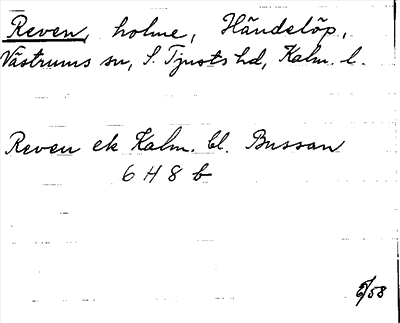 Reven, holme, Händelöp,
Västrums sn, S. Tjusts hd, Kalm. l.
Reven ek Kalm. bl. Bussan
6 H 8 b
6/58